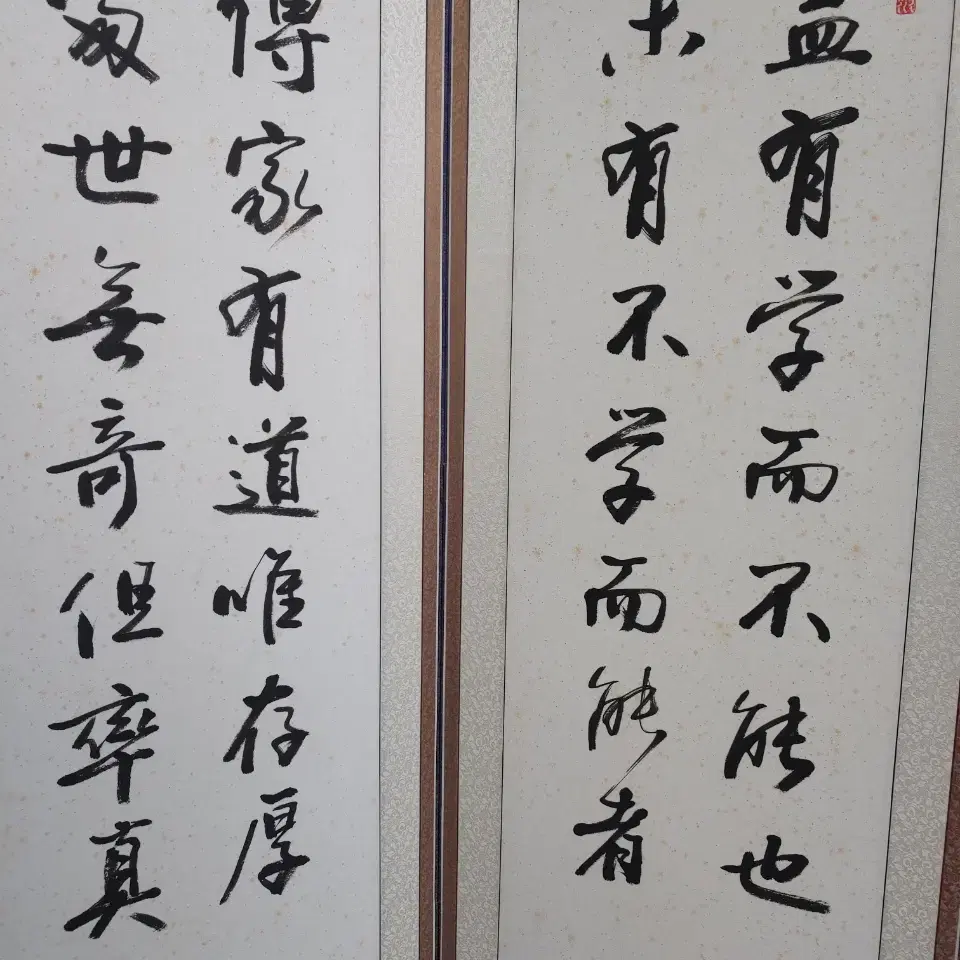 有学而不能也
有不学而能者
傳家有道唯存厚
世無奇但率真